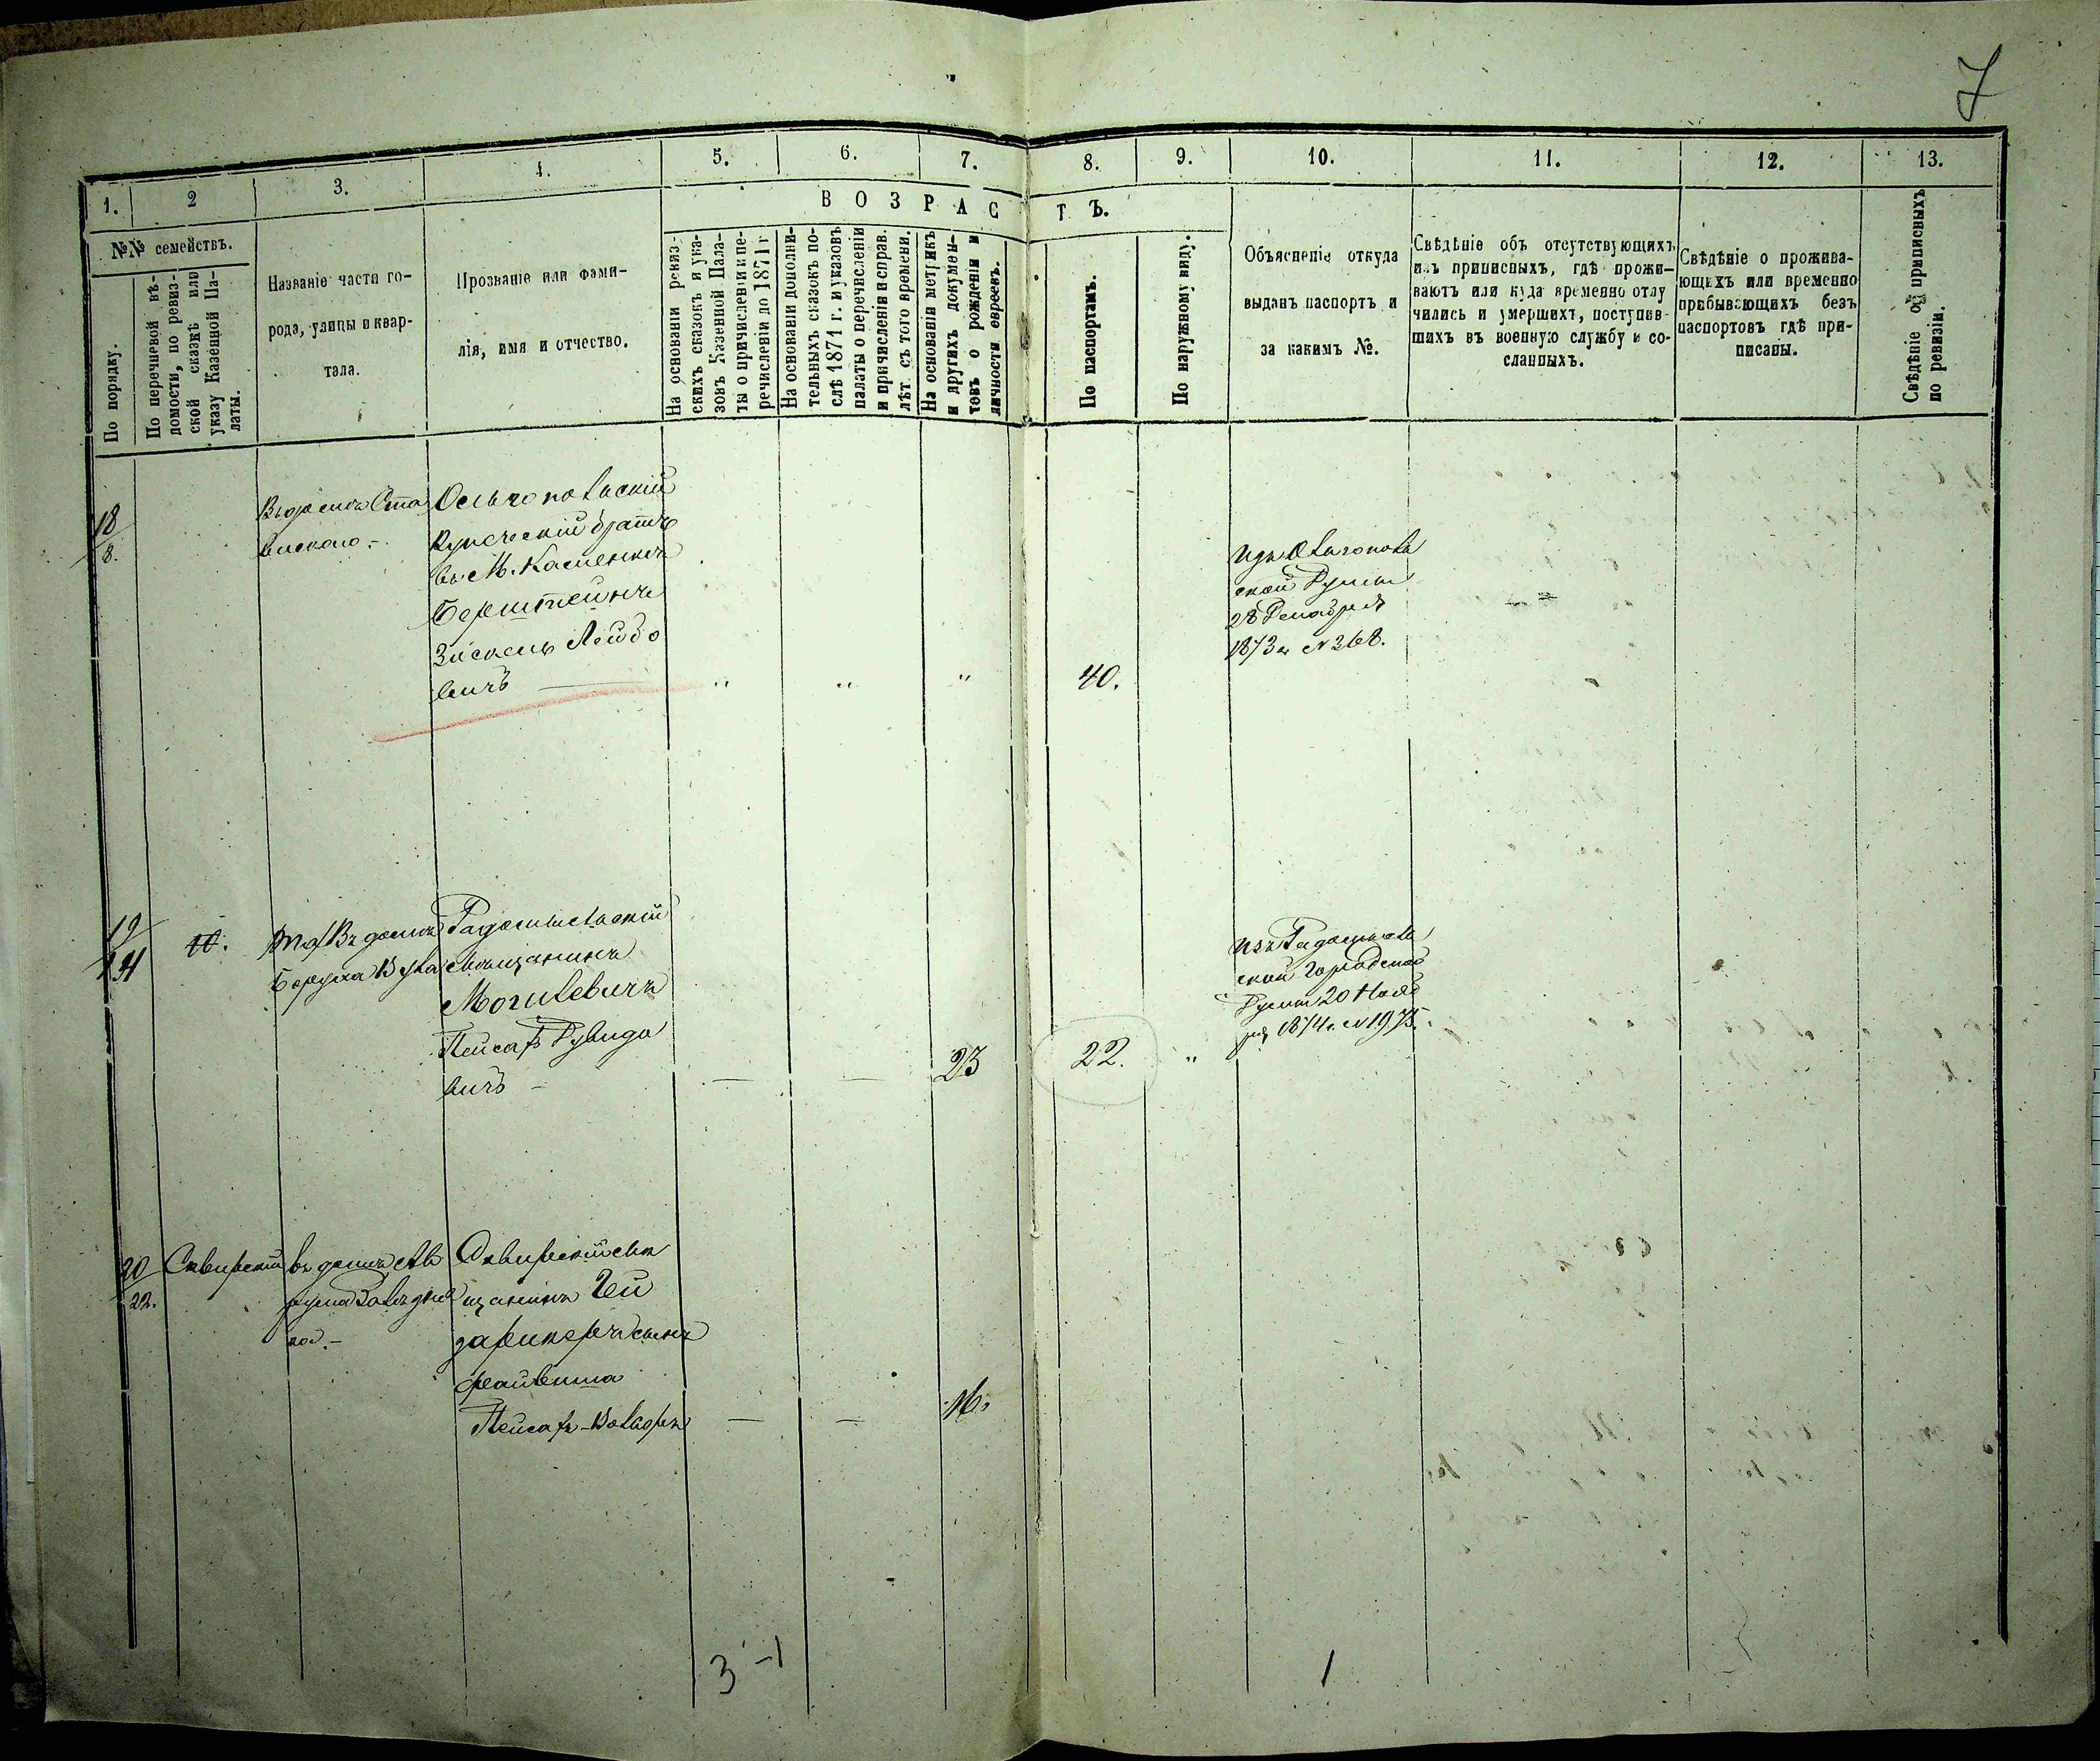 7
1.
2
3.
4.
5.
6.
7.
8.
9.
10.
11.
12.
13.
№№ семействъ.
ВОЗРАСТЪ.
По порядку.
По перечневой вѣ-
домости, по ревиз-
ской сказкѣ или
указу Казенной Па-
латы.
Названіе части го-
рода, улицы и квар-
тала.
Прозваніе или фами-
лія, имя и отчество.
На основаніи ревиз-
скихъ сказокъ и ука-
зовъ Казенной Пала-
ты о причисленіи и пе-
речисленіи до 1871 г
На основаніи дополни-
тельныхъ сказокъ по-
слѣ 1871 г. и указовъ
палаты о перечисленіи
и причисленіи и справ.
лѣт. съ того времени.
На основаніи метрикъ
и другихъ докумен-
товъ о рожденіи и
личности евреевъ.
По паспортамъ.
По наружному виду.
Объясненіе откуда
выданъ паспортъ и
за какимъ №.
Свѣдѣніе объ отсутствующихъ
изъ приписныхъ, гдѣ прожи-
ваютъ или куда временно отлу
чились и умершихъ, поступив-
шихъ въ военную службу и со-
сланныхъ.
Свѣдѣніе о прожива-
ющихъ или временно
пребывающихъ безъ
паспортовъ гдѣ при-
писаны.
Свѣдѣніе объ приписныхъ
по ревизіи.
18
8.
Купеческій братъ
въ М. Каменкѣ
Берштейнъ
Зискель Лейбо
вичъ
40.
Изъ Ольгополь
ской Думы
28 Декабря
1873 г. №268.
19
10.
въ домѣ
Радомысльскій
мѣщанинъ
Могилевичъ
Пейсахъ Дувидо
вичъ
23
22.
Изъ Радомысль
ской Городской
Думы 20 Нояб
ря 1874 г. №1975.
20
22.
Сквирскій
въ домѣ
Сквирскій мѣ
щанинъ Гей
сынъ
Пейсахъ-Волько
16.
3 -1
1